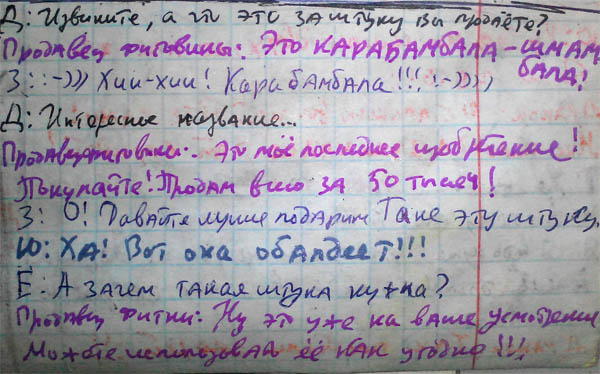 Д: Извините, а что это за штуку вы продаёте?
Продавец фиговины: Это КАРАБАМБАЛА-ШМАМБАЛА!
З: :-))) Хии-хии! Карабамбала!!! :-))))
Д: Интересное название...
Продавец фиговины: Это моё последнее изобретение!
Покупайте! Продам всего за 50 тысеч!
З: О! Давайте лучше подарим Тане эту штуку.
Ю: ХА! Вот она обалдеет!!!
Е: А зачем такая штука нужна?
Продавец: Ну это уже на ваше усмотрение
Можете использовать её как угодно!!!